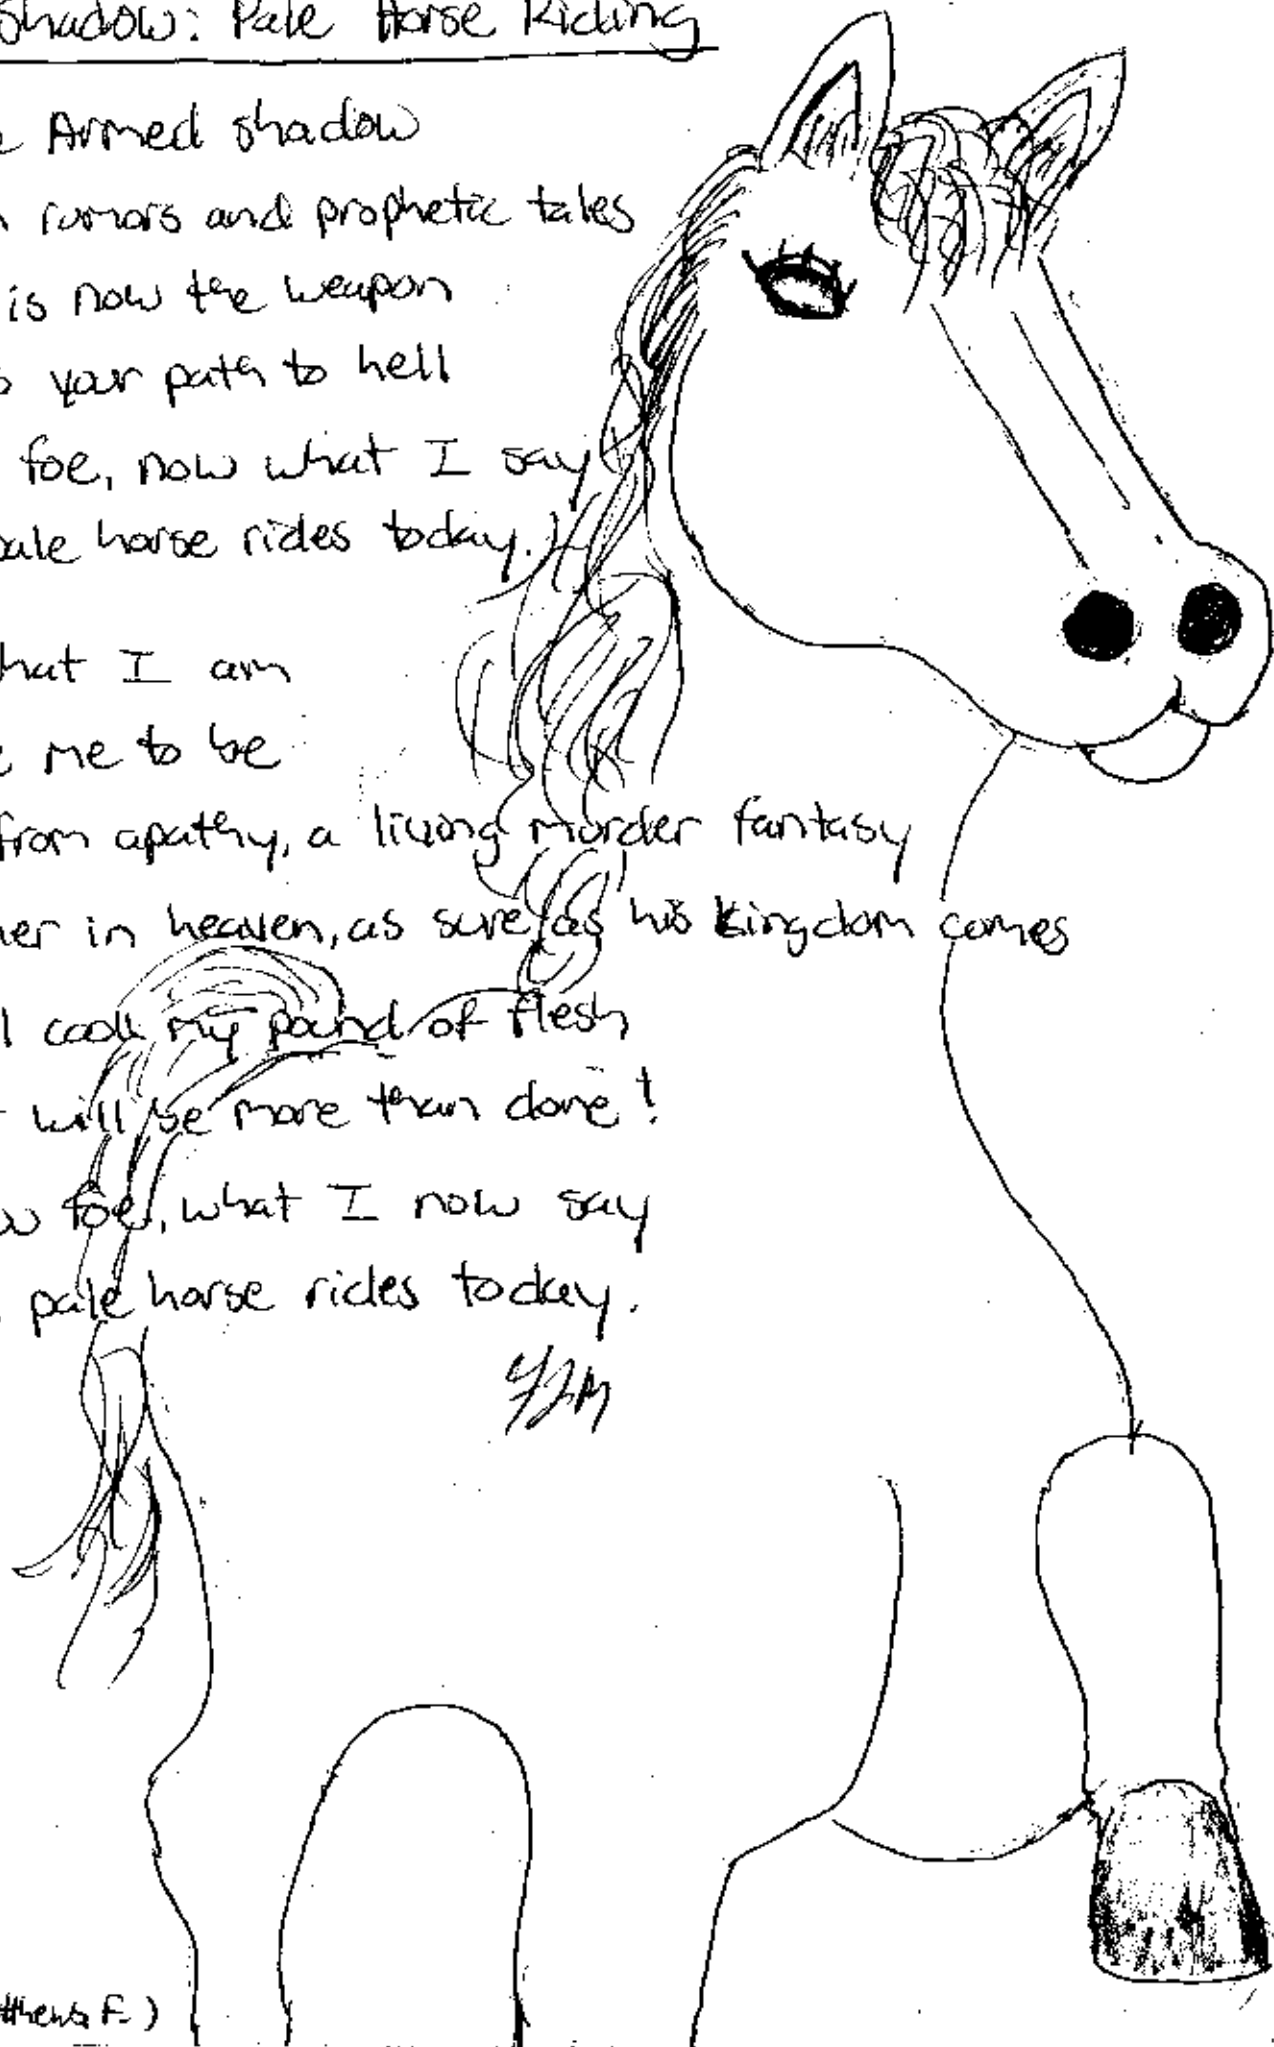 Shadow: Pale Horse Riding
Armed shadow
rumors and prophetic tales
is now the weapon
your path to hell
foe, now what I say
pale horse rides today.
hat I am
me to be
from apathy, a living murder fantasy
her in heaven, as sure as his kingdom comes
my pound of flesh
will be more than done!
foe, what I now say
pale horse rides today.